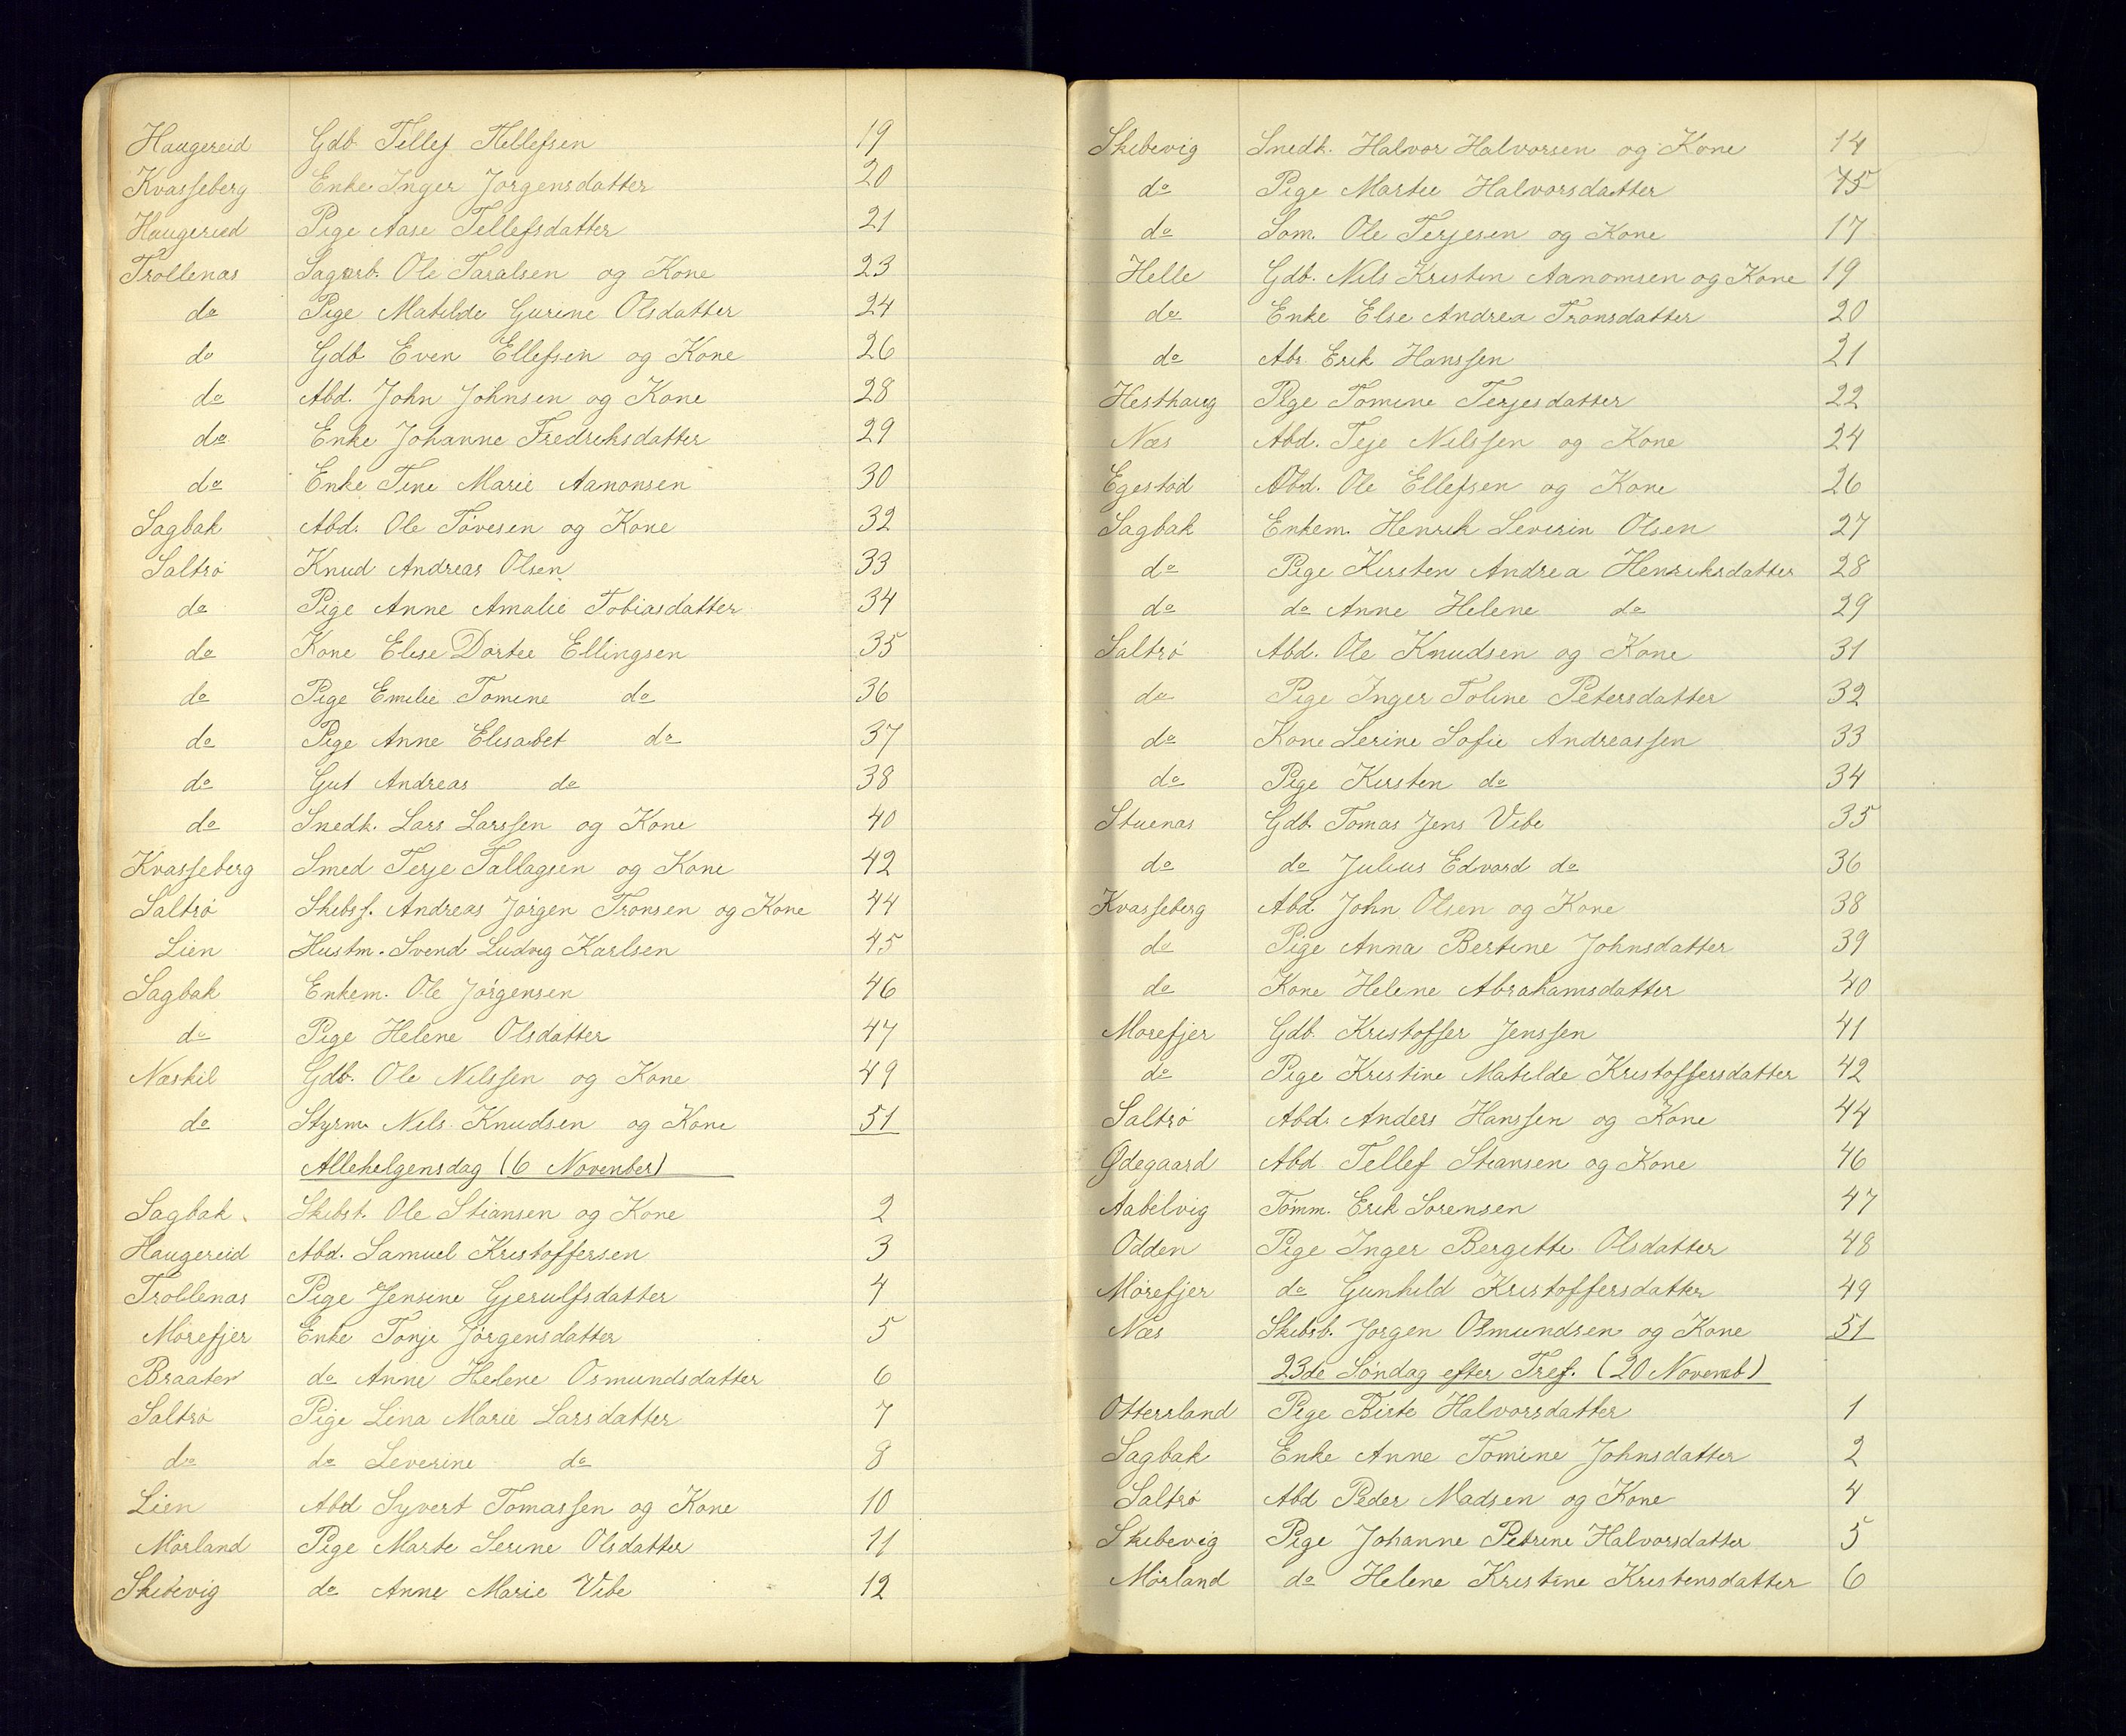 Haugereid Gdb. Tellef Tellefsen 19
Kvasseberg Enke Inger Jørgensdatter 20
Haugereid Pige Aase Tellefsdatter 21
Trollenas Sagarb. Ole Taralsen og Kone 23
do Pige Matilde Gurine Olsdatter 24
do Gdb. Even Ellefsen og Kone 26
do Abd. John Johnsen og Kone 28
do Enke Johanne Fredriksdatter 29
do Enke Tine Marie Aanonsen 30
Sagbak Abd. Ole Tøvesen og Kone 32
Saltrø Knud Andreas Olsen 33
do Pige Anne Amalie Tobiasdatter 34
do Kone Elise Dortee Ellingsen 35
do Pige Emilie Tomine do 36
do Pige Anne Elisabet do 37
do Gut Andreas do 38
do Snedk. Lars Larssen og Kone 40
Kvasseberg Smed Terje Tallagsen og Kone 42
Saltrø Skibsf. Andreas Jørgen Tronsen og Kone 44
Lien Hustm. Svend Ludvig Karlsen 45
Sagbak Enkem. Ole Jørgensen 46
do Pige Helene Olsdatter 47
Næskil Gdb. Ole Nilssen og Kone 49
do Styrm. Nils Knudsen og Kone 51
Allehelgensdag (6 November)
Sagbak Skibst. Ole Stiansen og Kone 2
Haugereid Abd. Samuel Kristoffersen 3
Trollenas Pige Jensine Gjerulfsdatter 4
Mørefjer Enke Tonje Jørgensdatter 5
Braaten do Anne Helene Osmundsdatter 6
Saltrø Pige Lina Marie Larsdatter 7
do do Severine do 8
Lien Abd Syvert Tomassen og Kone 10
Mørland Pige Marte Serine Olsdatter 11
Skibevig do Anne Marie Vibe 12
Skibevig Snedk. Halvor Halvorsen og Kone 14
do Pige Martee Halvorsdatter 15
do Søm. Ole Terjesen og Kone 17
Helle Gdb. Nils Kristen Aanomsen og Kone 19
do Enke Else Andrea Tronsdatter 20
do Abr. Erik Hanssen 21
Hesthaug Pige Tomine Terjesdatter 22
Næs Abd. Teje Nilssen og Kone 24
Egestød Abd. Ole Ellefsen og Kone 26
Sagbak Enkem. Henrik Severin Olsen 27
do Pige Kirsten Andrea Henriksdatter 28
do do Anne Helene do 29
Saltrø Abd. Ole Knudsen og Kone 31
do Pige Inger Toline Petersdatter 32
do Kone Serine Sofie Andreassen 33
do Pige Kirsten do 34
Stuenas Gdb. Tomas Jens Vibe 35
do do Julius Edvard do 36
Kvasseberg Abd. John Olsen og Kone 38
do Pige Anna Bertine Johnsdatter 39
do Kone Helene Abrahamsdatter 40
Mørefjer Gdb. Kristoffer Jenssen 41
do Pige Kristine Matilde Kristoffersdatter 42
Saltrø Abd. Anders Hanssen og Kone 44
Ødegaard Abd Tellef Stiansen og Kone 46
Aabelvig Tømm. Erik Sørensen 47
Odden Pige Inger Bergitte Olsdatter 48
Mørefjer do Gunhild Kristoffersdatter 49
Næs Skibsb. Jørgen Osmundsen og Kone 51
23de Søndag efter Tref. (20 Novemb)
Ottersland Pige Birte Halvorsdatter 1
Sagbak Enke Anne Tomine Johnsdatter 2
Saltrø Abd Peder Madsen og Kone 4
Skibevig Pige Johanne Petrine Halvorsdatter 5
Mørland do Helene Kristine Kristensdatter 6